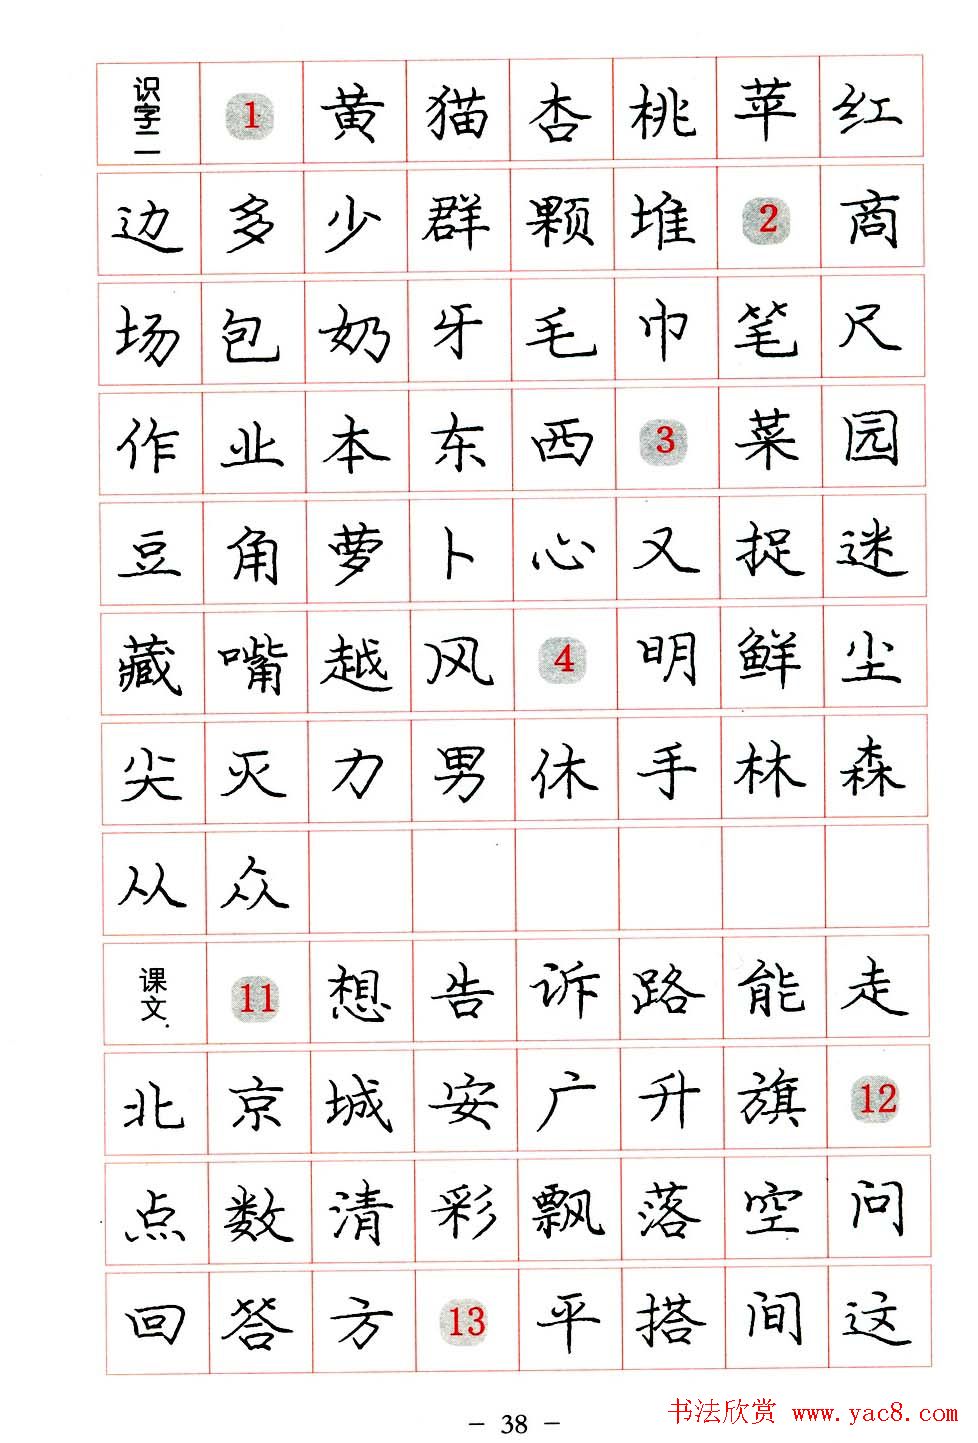 识字二 1 黄 猫 杏 桃 苹 红
边 多 少 群 颗 堆 2 商
场 包 奶 牙 毛 巾 笔 尺
作 业 本 东 西 3 菜 园
豆 角 萝 卜 心 又 捉 迷
藏 嘴 越 风 4 明 鲜 尘
尖 灭 力 男 休 手 林 森
从 众
课文. 11 想 告 诉 路 能 走
北 京 城 安 广 升 旗 12
点 数 清 彩 飘 落 空 问
回 答 方 13 平 搭 间 这
- 38 -
书法欣赏 www.yac8.com